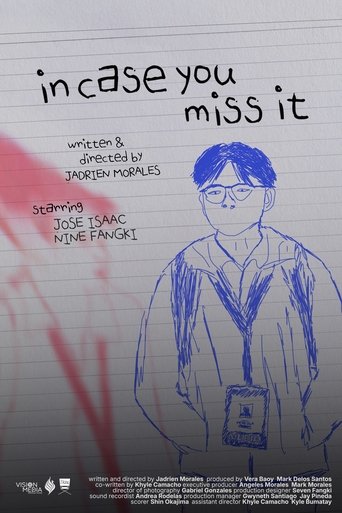 in case you
miss it
written &
directed by
JADRIEN MORALES
starring
JOSE ISAAC
NINE FANGKI
VISION
MEDIA
written and directed by Jadrien Morales produced by Vera Baoy Mark Delos Santos
co-written by Khyle Camacho executive producer Angeles Morales Mark Morales
director of photography Gabriel Gonzales production designer Seven Fangki
sound recordist Andrea Rodelas production manager Gwyneth Santiago Jay Pineda
scorer Shin Okajima assistant director Khyle Camacho Kyle Bumatay